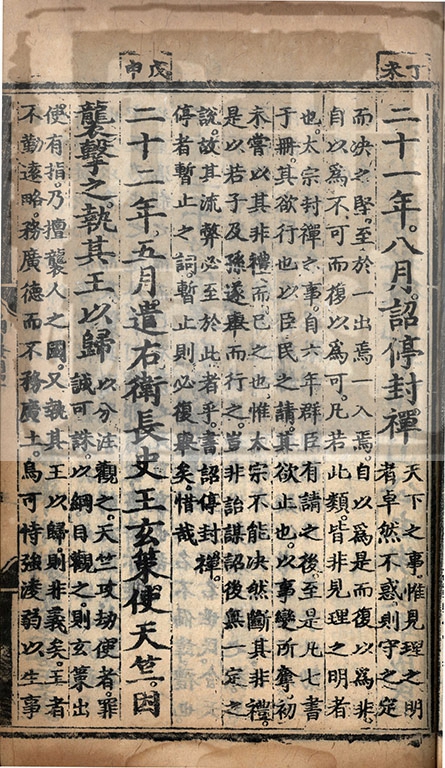 丁未
二十一年。八月。詔停封禪
天下之事惟見理之明
者卓然不惑。則守之定
而決之堅。至於一出焉一入焉。自以爲是而復以爲非。
自以爲不可而復以爲可。凡若此類。皆非見理之明者
也。太宗封禪之事。自六年群臣有請之後。至是凡七書
于冊。其欲行也以臣民之請。其欲止也。以事變所奪。初
未嘗以其非禮而已之也。惟太宗不能決然斷其非禮。
是以若子及孫遂舉而行之。豈非詒謀詔後無一定之
說。故其流弊必至於此者乎。書詔停封禪。
停者暫止之詞。暫止則必復舉矣。惜哉
戊申
二十二年。五月遣右衛長史王玄策使天竺。因
襲擊之。執其王以歸
以分注觀之。天竺攻劫使者。罪
誠可誅。以綱目觀之。則玄策出
使有指。乃擅襲人之國。又執其王以歸。則非義矣。王者
不勤遠略。務廣德而不務廣土。烏可恃強凌弱以生事